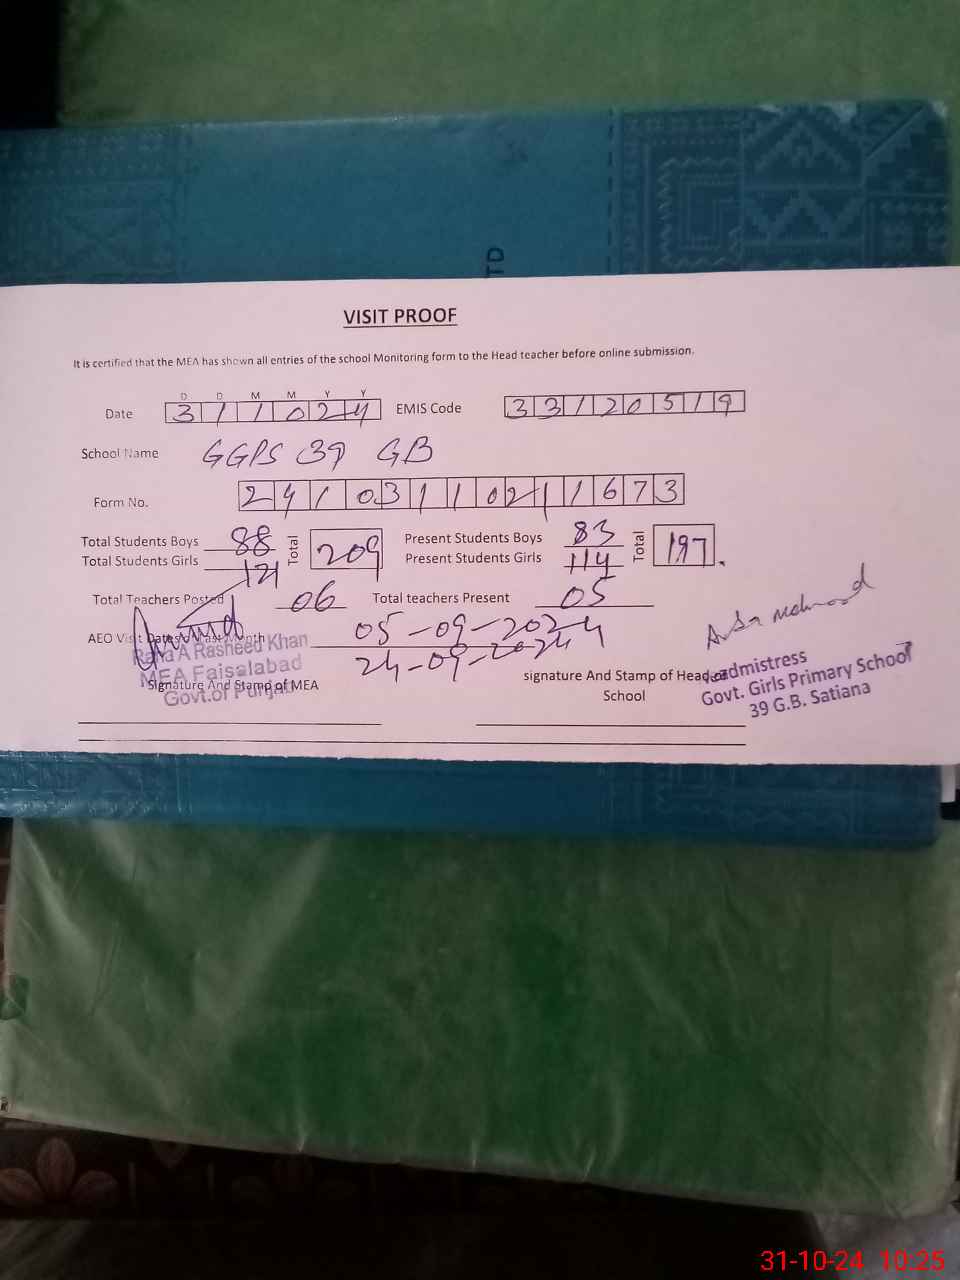 TD
VISIT PROOF
It is certified that the MEA has shown all entries of the school Monitoring form to the Head teacher before online submission.
D D M M Y Y
Date 3 1 1 0 2 4 EMIS Code 3 3 1 2 0 5 1 9
School Name GGPS 39 GB
Form No. 2 4 1 0 3 1 1 0 2 1 1 6 7 3
Total Students Boys 88 Total 209 Present Students Boys 83 Total 197
Total Students Girls 121 Present Students Girls 114
Total Teachers Posted 06 Total teachers Present 05
AEO Visit Dates Last Month 05-09-2024
24-09-2024
Rana A Rasheed Khan
MEA Faisalabad
Govt.of Punjab
Signature And Stamp of MEA
signature And Stamp of Head
School
Headmistress
Govt. Girls Primary School
39 G.B. Satiana
31-10-24 10:25